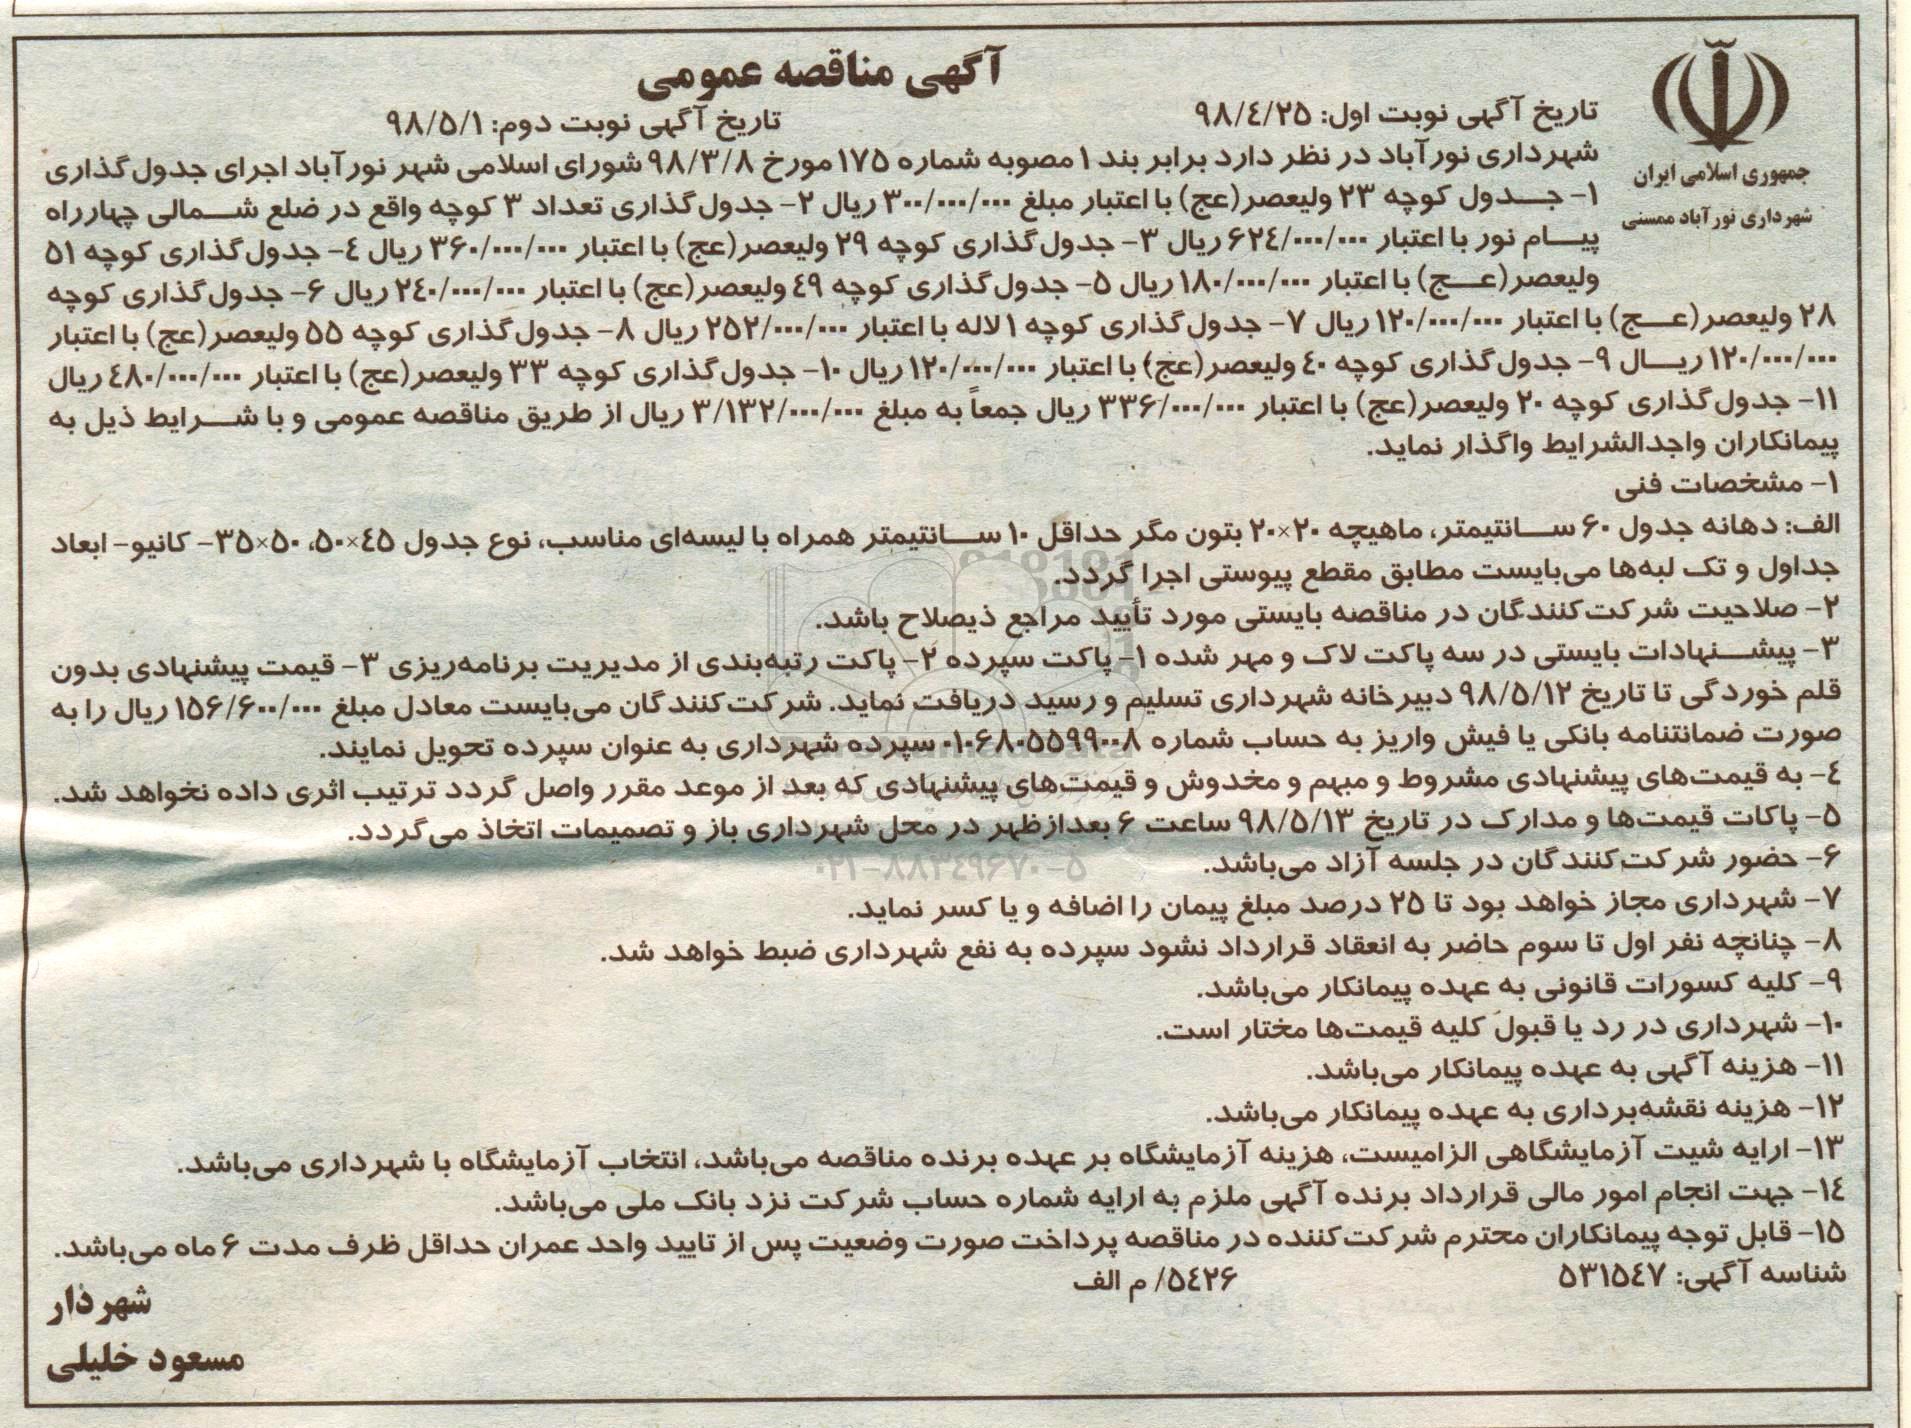 آگهی مناقصه عمومی
جمهوری اسلامی ایران
شهرداری نورآباد ممسنی
تاریخ آگهی نوبت اول: ۹۸/٤/۲۵
تاریخ آگهی نوبت دوم: ۹۸/۵/۱
شهرداری نورآباد در نظر دارد برابر بند ۱ مصوبه شماره ۱۷۵ مورخ ۹۸/۳/۸ شورای اسلامی شهر نورآباد اجرای جدول‌گذاری
۱- جدول کوچه ۲۳ ولیعصر(عج) با اعتبار مبلغ ۳۰۰/۰۰۰/۰۰۰ ریال ۲- جدول‌گذاری تعداد ۳ کوچه واقع در ضلع شمالی چهارراه
پیام نور با اعتبار ۶۲٤/۰۰۰/۰۰۰ ریال ۳- جدول‌گذاری کوچه ۲۹ ولیعصر(عج) با اعتبار ۳۶۰/۰۰۰/۰۰۰ ریال ٤- جدول‌گذاری کوچه ۵۱
ولیعصر(عج) با اعتبار ۱۸۰/۰۰۰/۰۰۰ ریال ۵- جدول‌گذاری کوچه ٤۹ ولیعصر(عج) با اعتبار ۲٤۰/۰۰۰/۰۰۰ ریال ۶- جدول‌گذاری کوچه
۲۸ ولیعصر(عج) با اعتبار ۱۲۰/۰۰۰/۰۰۰ ریال ۷- جدول‌گذاری کوچه ۱ لاله با اعتبار ۲۵۲/۰۰۰/۰۰۰ ریال ۸- جدول‌گذاری کوچه ۵۵ ولیعصر(عج) با اعتبار
۱۲۰/۰۰۰/۰۰۰ ریال ۹- جدول‌گذاری کوچه ٤۰ ولیعصر(عج) با اعتبار ۱۲۰/۰۰۰/۰۰۰ ریال ۱۰- جدول‌گذاری کوچه ۳۳ ولیعصر(عج) با اعتبار ٤۸۰/۰۰۰/۰۰۰ ریال
۱۱- جدول‌گذاری کوچه ۲۰ ولیعصر(عج) با اعتبار ۳۳۶/۰۰۰/۰۰۰ ریال جمعاً به مبلغ ۳/۱۳۲/۰۰۰/۰۰۰ ریال از طریق مناقصه عمومی و با شرایط ذیل به
پیمانکاران واجدالشرایط واگذار نماید.
۱- مشخصات فنی
الف: دهانه جدول ۶۰ سانتیمتر، ماهیچه ۲۰×۲۰ بتون مگر حداقل ۱۰ سانتیمتر همراه با لیسه‌ای مناسب، نوع جدول ٤۵×۵۰، ۵۰×۳۵- کانیو- ابعاد
جداول و تک لبه‌ها می‌بایست مطابق مقطع پیوستی اجرا گردد.
۲- صلاحیت شرکت‌کنندگان در مناقصه بایستی مورد تأیید مراجع ذیصلاح باشد.
۳- پیشنهادات بایستی در سه پاکت لاک و مهر شده ۱- پاکت سپرده ۲- پاکت رتبه‌بندی از مدیریت برنامه‌ریزی ۳- قیمت پیشنهادی بدون
قلم خوردگی تا تاریخ ۹۸/۵/۱۲ دبیرخانه شهرداری تسلیم و رسید دریافت نماید. شرکت‌کنندگان می‌بایست معادل مبلغ ۱۵۶/۶۰۰/۰۰۰ ریال را به
صورت ضمانتنامه بانکی یا فیش واریز به حساب شماره ۰۱۰۶۸۰۵۵۹۹۰۰۸ سپرده شهرداری به عنوان سپرده تحویل نمایند.
٤- به قیمت‌های پیشنهادی مشروط و مبهم و مخدوش و قیمت‌های پیشنهادی که بعد از موعد مقرر واصل گردد ترتیب اثری داده نخواهد شد.
۵- پاکات قیمت‌ها و مدارک در تاریخ ۹۸/۵/۱۳ ساعت ۶ بعدازظهر در محل شهرداری باز و تصمیمات اتخاذ می‌گردد.
۶- حضور شرکت‌کنندگان در جلسه آزاد می‌باشد.
۰۲۱-۸۸۳٤۹۶۷۰-۵
۷- شهرداری مجاز خواهد بود تا ۲۵ درصد مبلغ پیمان را اضافه و یا کسر نماید.
۸- چنانچه نفر اول تا سوم حاضر به انعقاد قرارداد نشود سپرده به نفع شهرداری ضبط خواهد شد.
۹- کلیه کسورات قانونی به عهده پیمانکار می‌باشد.
۱۰- شهرداری در رد یا قبول کلیه قیمت‌ها مختار است.
۱۱- هزینه آگهی به عهده پیمانکار می‌باشد.
۱۲- هزینه نقشه‌برداری به عهده پیمانکار می‌باشد.
۱۳- ارایه شیت آزمایشگاهی الزامیست، هزینه آزمایشگاه بر عهده برنده مناقصه می‌باشد، انتخاب آزمایشگاه با شهرداری می‌باشد.
۱٤- جهت انجام امور مالی قرارداد برنده آگهی ملزم به ارایه شماره حساب شرکت نزد بانک ملی می‌باشد.
۱۵- قابل توجه پیمانکاران محترم شرکت‌کننده در مناقصه پرداخت صورت وضعیت پس از تایید واحد عمران حداقل ظرف مدت ۶ ماه می‌باشد.
شناسه آگهی: ۵۳۱۵٤۷
۵٤۲۶/ م الف
شهردار
مسعود خلیلی